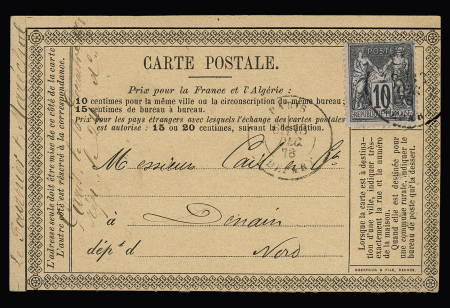 CARTE POSTALE.
Prix pour la France et l'Algérie:
10 centimes pour la même ville ou la circonscription du même bureau;
15 centimes de bureau à bureau.
Prix pour les pays étrangers avec lesquels l'échange des cartes postales
est autorisé: 15 ou 20 centimes, suivant la destination.
POSTE
10
DEC.
78
Messieurs Cail &
à Denain
dép.t d Nord
L'adresse seule doit être mise de ce côté de la carte
L'autre côté est réservé à la correspondance.
Lorsque la carte est à destina-
tion d'une ville, indiquer très-
exactement la rue et le numéro
de la maison.
Quand elle est destinée pour
une commune rurale, indiquer le
bureau de poste qui la dessert.
OBERTHUR & FILS, RENNES.